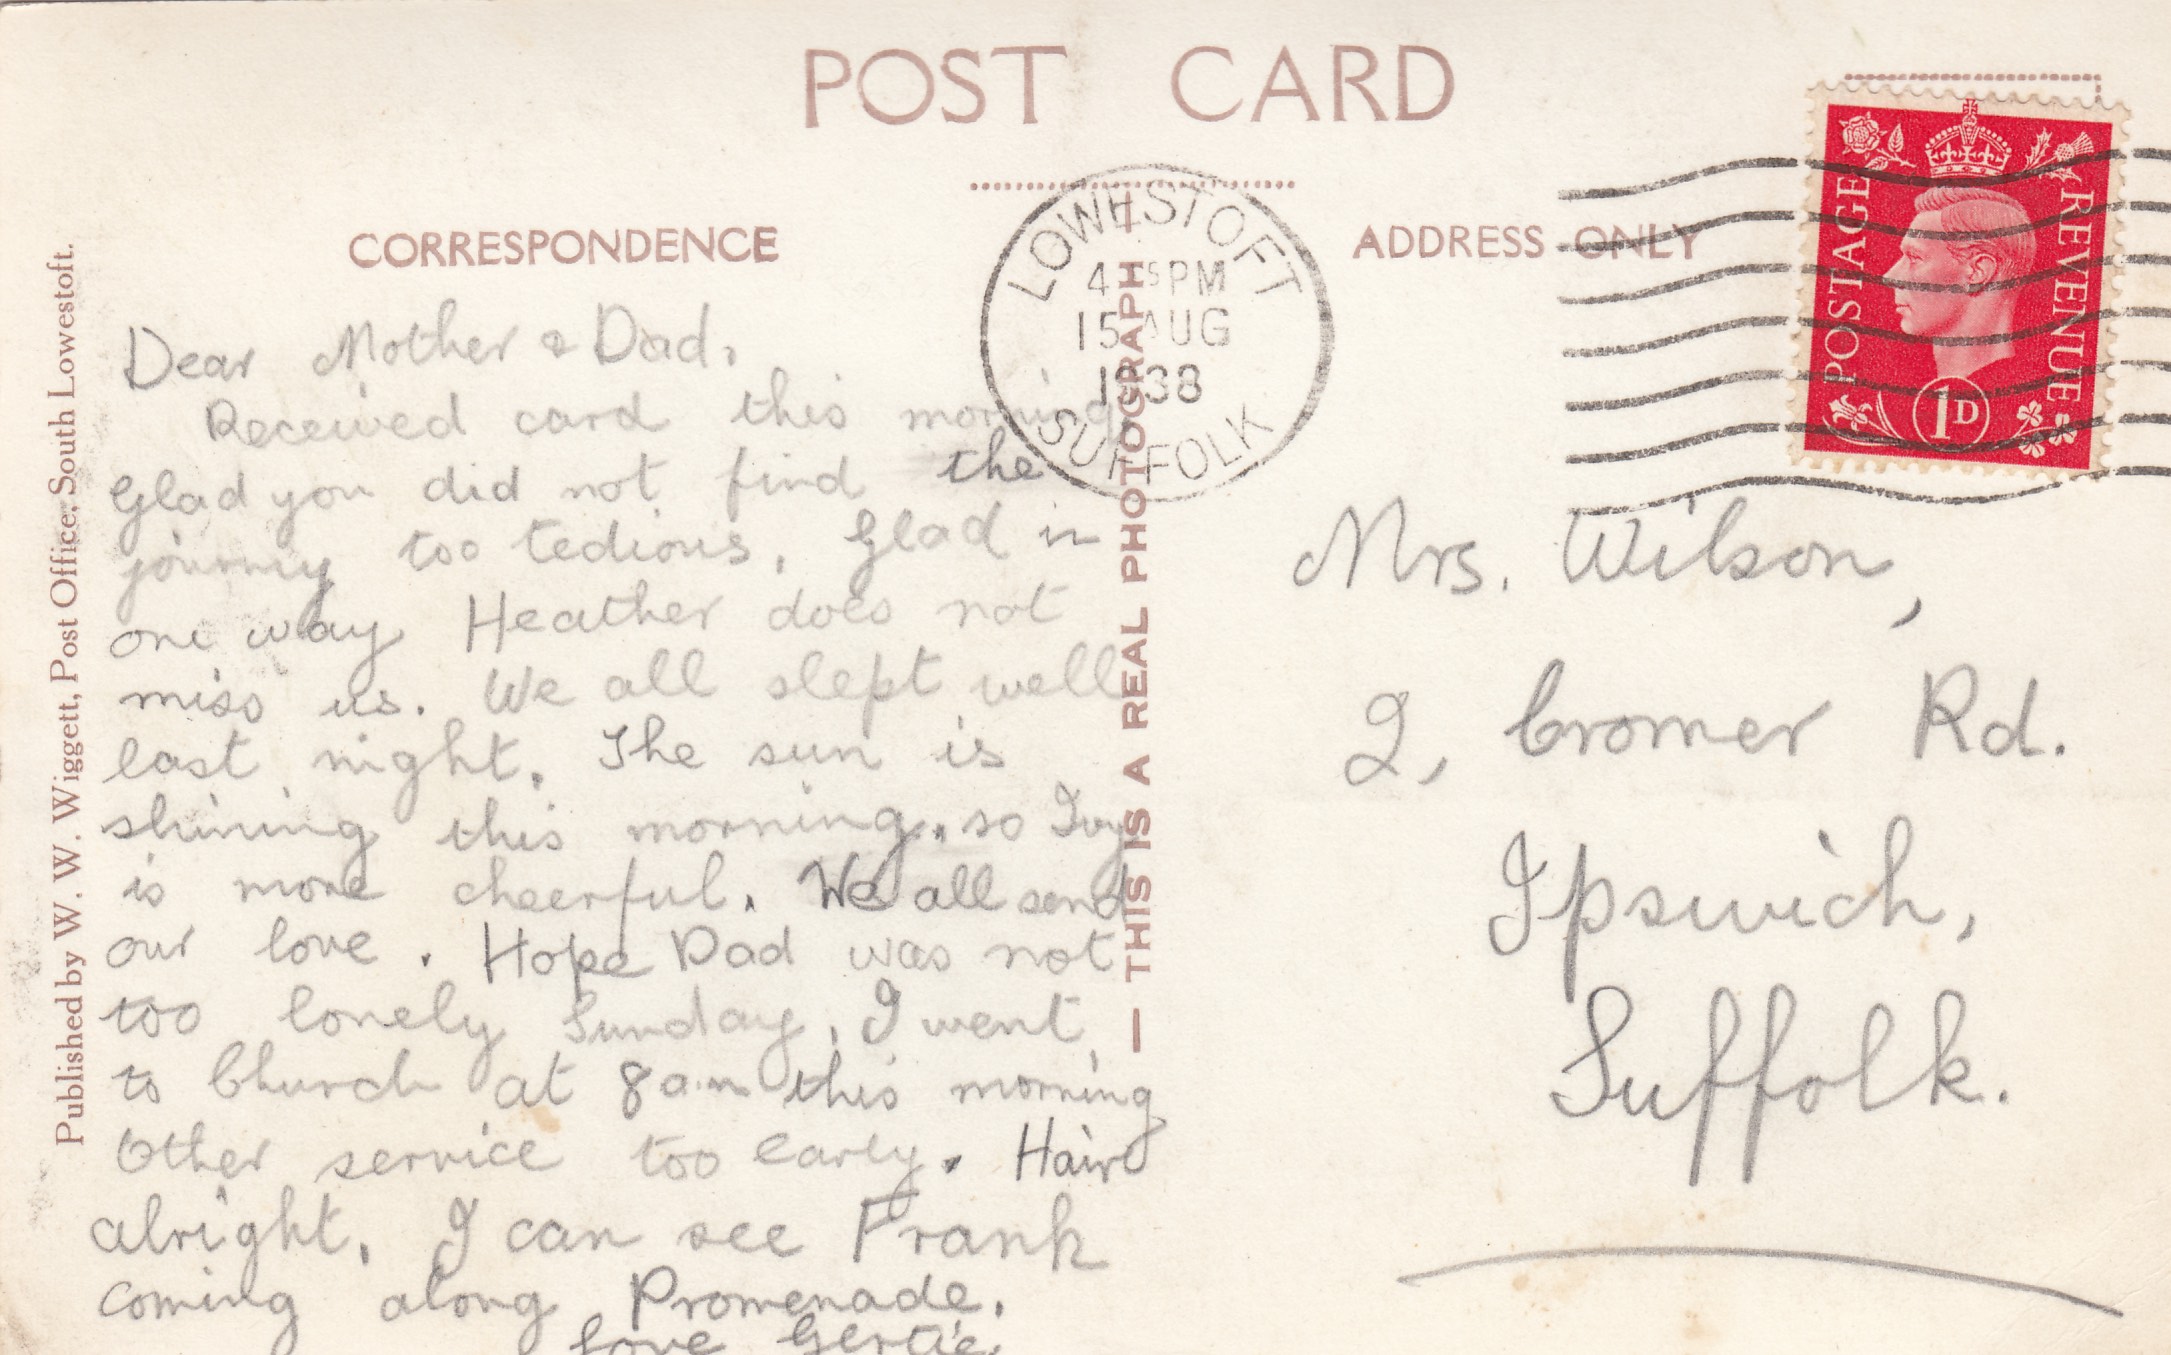 POST CARD
CORRESPONDENCE
ADDRESS ONLY
LOWESTOFT
4 15 PM
15 AUG
1938
SUFFOLK
POSTAGE
REVENUE
1D
Published by W. W. Wiggett, Post Office, South Lowestoft.
— THIS IS A REAL PHOTOGRAPH —
Dear Mother & Dad,
Received card this morning
Glad you did not find the
journey too tedious. Glad in
one way Heather does not
miss us. We all slept well
last night. The sun is
shining this morning, so Ivy
is more cheerful. We all send
our love. Hope Dad was not
too lonely Sunday. I went
to Church at 8 a.m this morning
Other service too early. Hair
alright. I can see Frank
coming along Promenade.
Love Gertie.
Mrs. Wilson,
2, Cromer Rd.
Ipswich,
Suffolk.